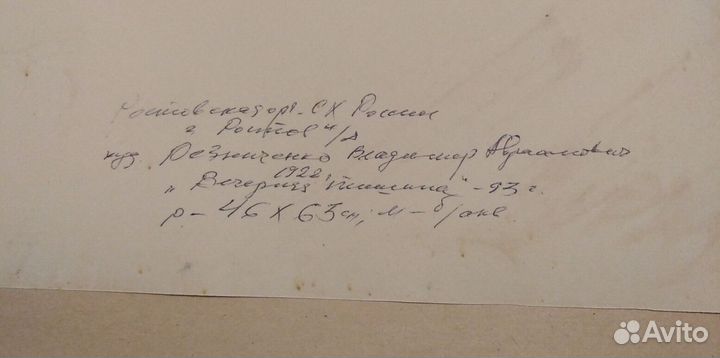 Ростовская орг. СХ России
г. Ростов н/Д
худ. Резниченко Владимир Абрамович
1922,
„Вечерняя тишина" - 93 г.
р - 46 X 63 см; м - б/акв.
Avito